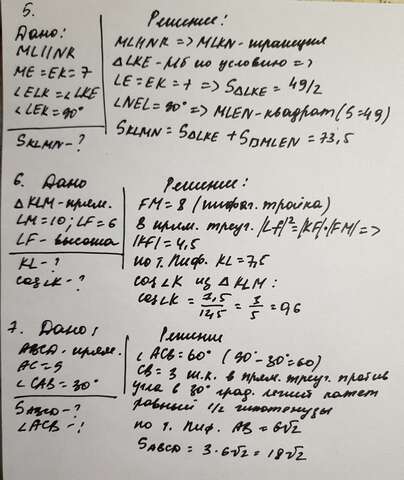 5.
Дано:
ML||NK
ME=EK=7
∠ELK=∠LKE
∠LEK=90°
SKLMN-?
Решение:
ML||NK => MLKN-трапеция
△LKE-МБ по условию =>
LE=EK=7 => S△LKE=49/2
∠NEL=90° => MLEN-квадрат (S=49)
SKLMN=S△LKE+S□MLEN=73,5
6. Дано
△KLM-прям.
LM=10; LF=6
LF-высота
KL-?
cos∠K-?
Решение:
FM=8 (пифаг. тройка)
В прям. треуг. |LF|²=|KF|·|FM| =>
|KF|=4,5
по т. Пиф. KL=7,5
cos∠K из △KLM:
cos∠K=7,5/12,5=3/5=0,6
7. Дано:
ABCD-прям.
∠CAB=30°
SABCD-?
∠ACB-?
Решение
∠ACB=60° (90°-30°=60)
CB=3 т.к. в прям. треуг. против
угла в 30° град. лежит катет
равный 1/2 гипотенузы
по т. Пиф. AB=6√2
SABCD=3·6√2=18√2